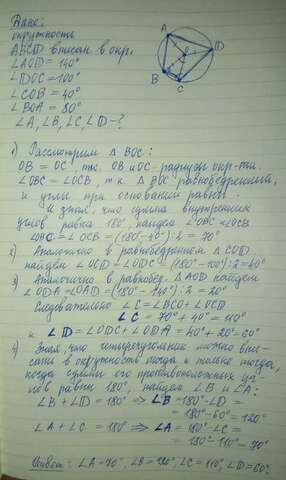 Дано:
окружность
ABCD вписан в окр.
∠AOD = 140°
∠DOC = 100°
∠COB = 40°
∠BOA = 80°
∠A, ∠B, ∠C, ∠D - ?
A
D
B
C
1) Рассмотрим △ BOC:
OB = OC, т.к. OB и OC - радиусы окр-ти.
∠OBC = ∠OCB, т.к. △ BOC равнобедренный,
и углы при основании равны
Зная, что сумма внутренних
углов равна 180°, найдем ∠OBC и ∠OCB
∠OBC = ∠OCB = (180°-40°):2 = 70°
2) Аналогично в равнобедренном △ COD
найдем ∠OCD = ∠ODC = (180°-100°):2 = 40°
3) Аналогично в равнобед. △ AOD найдем
∠ODA = ∠OAD = (180°-140°):2 = 20°
Следовательно ∠C = ∠BCO + ∠OCD
∠C = 70° + 40° = 110°
и ∠D = ∠ODC + ∠ODA = 40° + 20° = 60°
4) Зная, что четырехугольник можно впи-
сать в окружность тогда и только тогда,
когда суммы его противоположных уг-
лов равны 180°, найдем ∠B и ∠A:
∠B + ∠D = 180° ⇒ ∠B = 180° - ∠D =
= 180° - 60° = 120°
∠A + ∠C = 180° ⇒ ∠A = 180° - ∠C =
= 180° - 110° = 70°
Ответ: ∠A = 70°, ∠B = 120°, ∠C = 110°, ∠D = 60°.